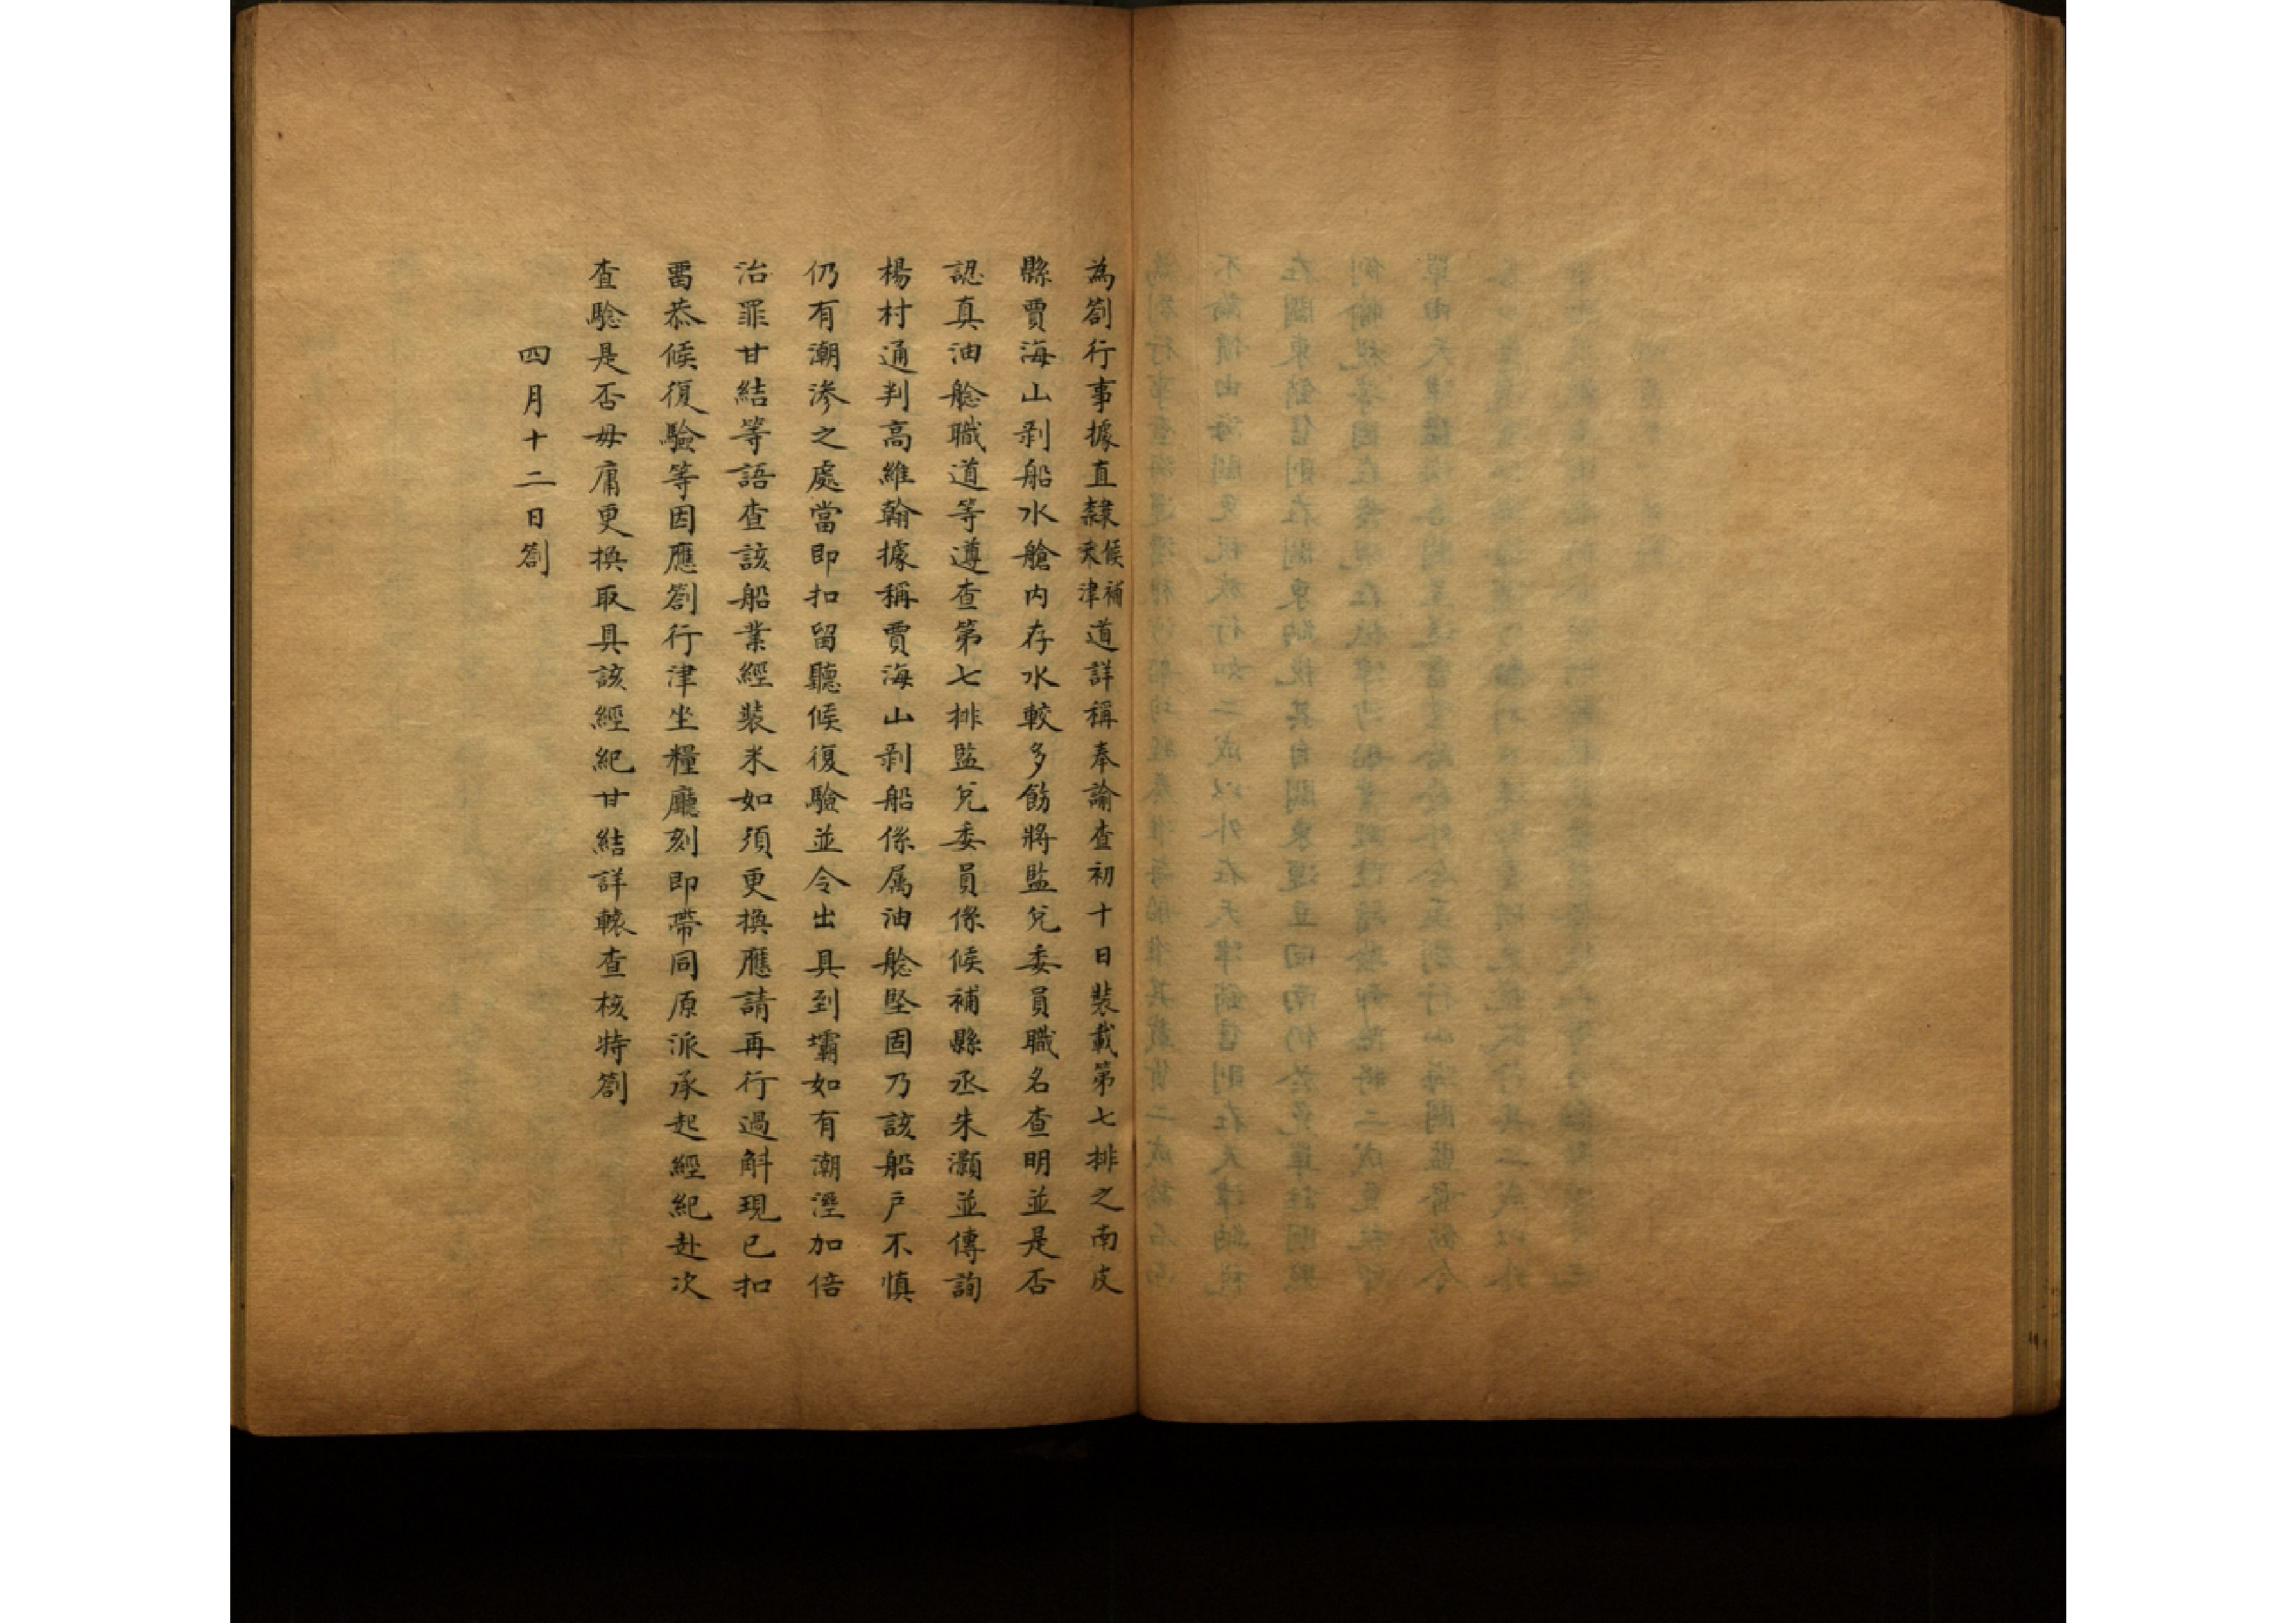 為劄行事據直隸候補天津道詳稱奉諭查初十日裝載第七排之南皮
縣賈海山剥船水艙内存水較多飭將監兌委員職名查明並是否
認真油艌職道等遵查第七排監兌委員係候補縣丞朱灝並傳詢
楊村通判高維翰據稱賈海山剥船係属油艌堅固乃該船戶不慎
仍有潮滲之處當即扣留聽候復驗並令出具到壩如有潮溼加倍
治罪甘結等語查該船業經裝米如須更換應請再行過斛現已扣
畱恭候復驗等因應劄行津坐糧廳刻即帶同原派承起經紀赴次
查驗是否毋庸更換取具該經紀甘結詳轅查核特劄
四月十二日劄